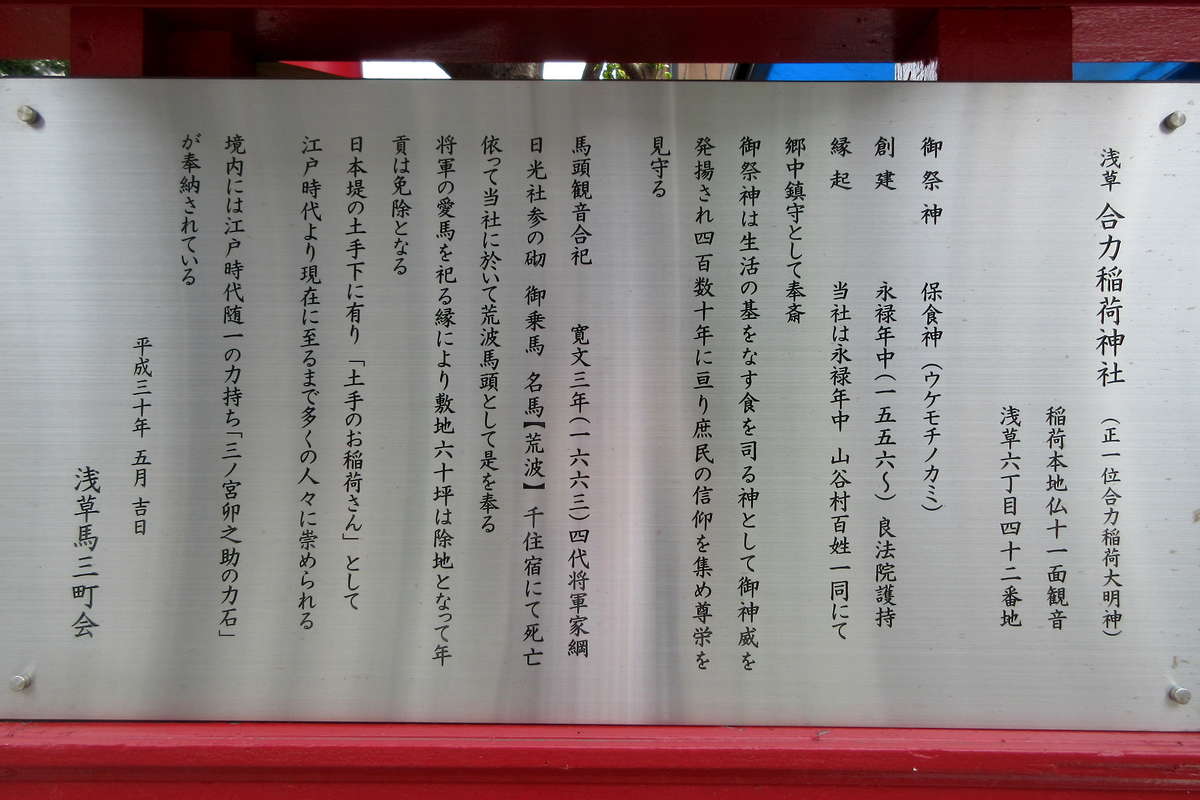 浅草 合力稲荷神社 （正一位合力稲荷大明神）
稲荷本地仏十一面観音
浅草六丁目四十二番地
御祭神 保食神（ウケモチノカミ）
創建 永禄年中（一五五六〜）良法院護持
縁起 当社は永禄年中 山谷村百姓一同にて
郷中鎮守として奉斎
御祭神は生活の基をなす食を司る神として御神威を
発揚され四百数十年に亘り庶民の信仰を集め尊栄を
見守る
馬頭観音合祀 寛文三年（一六六三）四代将軍家綱
日光社参の砌 御乗馬 名馬【荒波】千住宿にて死亡
依って当社に於いて荒波馬頭として是を奉る
将軍の愛馬を祀る縁により敷地六十坪は除地となって年
貢は免除となる
日本堤の土手下に有り「土手のお稲荷さん」として
江戸時代より現在に至るまで多くの人々に崇められる
境内には江戸時代随一の力持ち「三ノ宮卯之助の力石」
が奉納されている
平成三十年 五月 吉日
浅草馬三町会